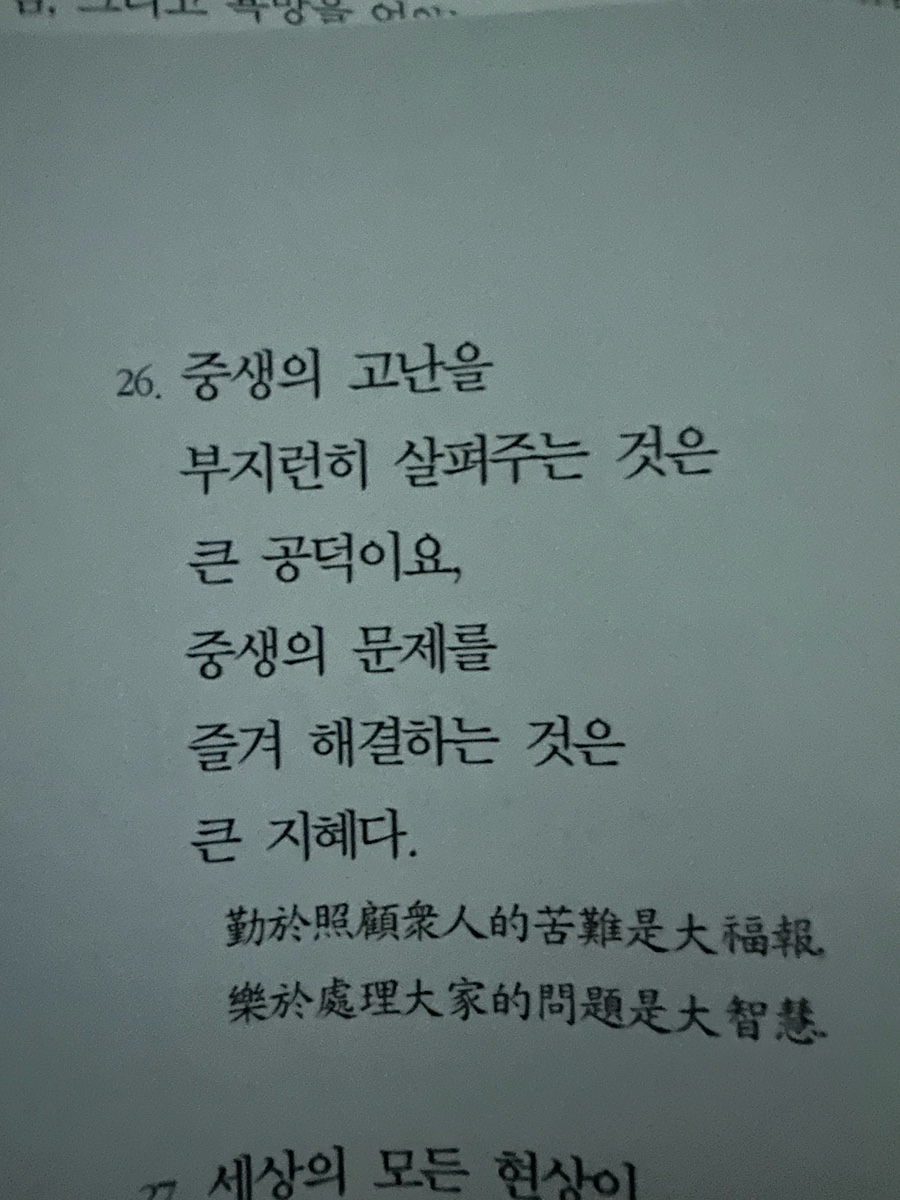 그리고 욕망을
26. 중생의 고난을
부지런히 살펴주는 것은
큰 공덕이요,
중생의 문제를
즐겨 해결하는 것은
큰 지혜다.
勤於照顧衆人的苦難是大福報,
樂於處理大家的問題是大智慧.
27. 세상의 모든 현상이